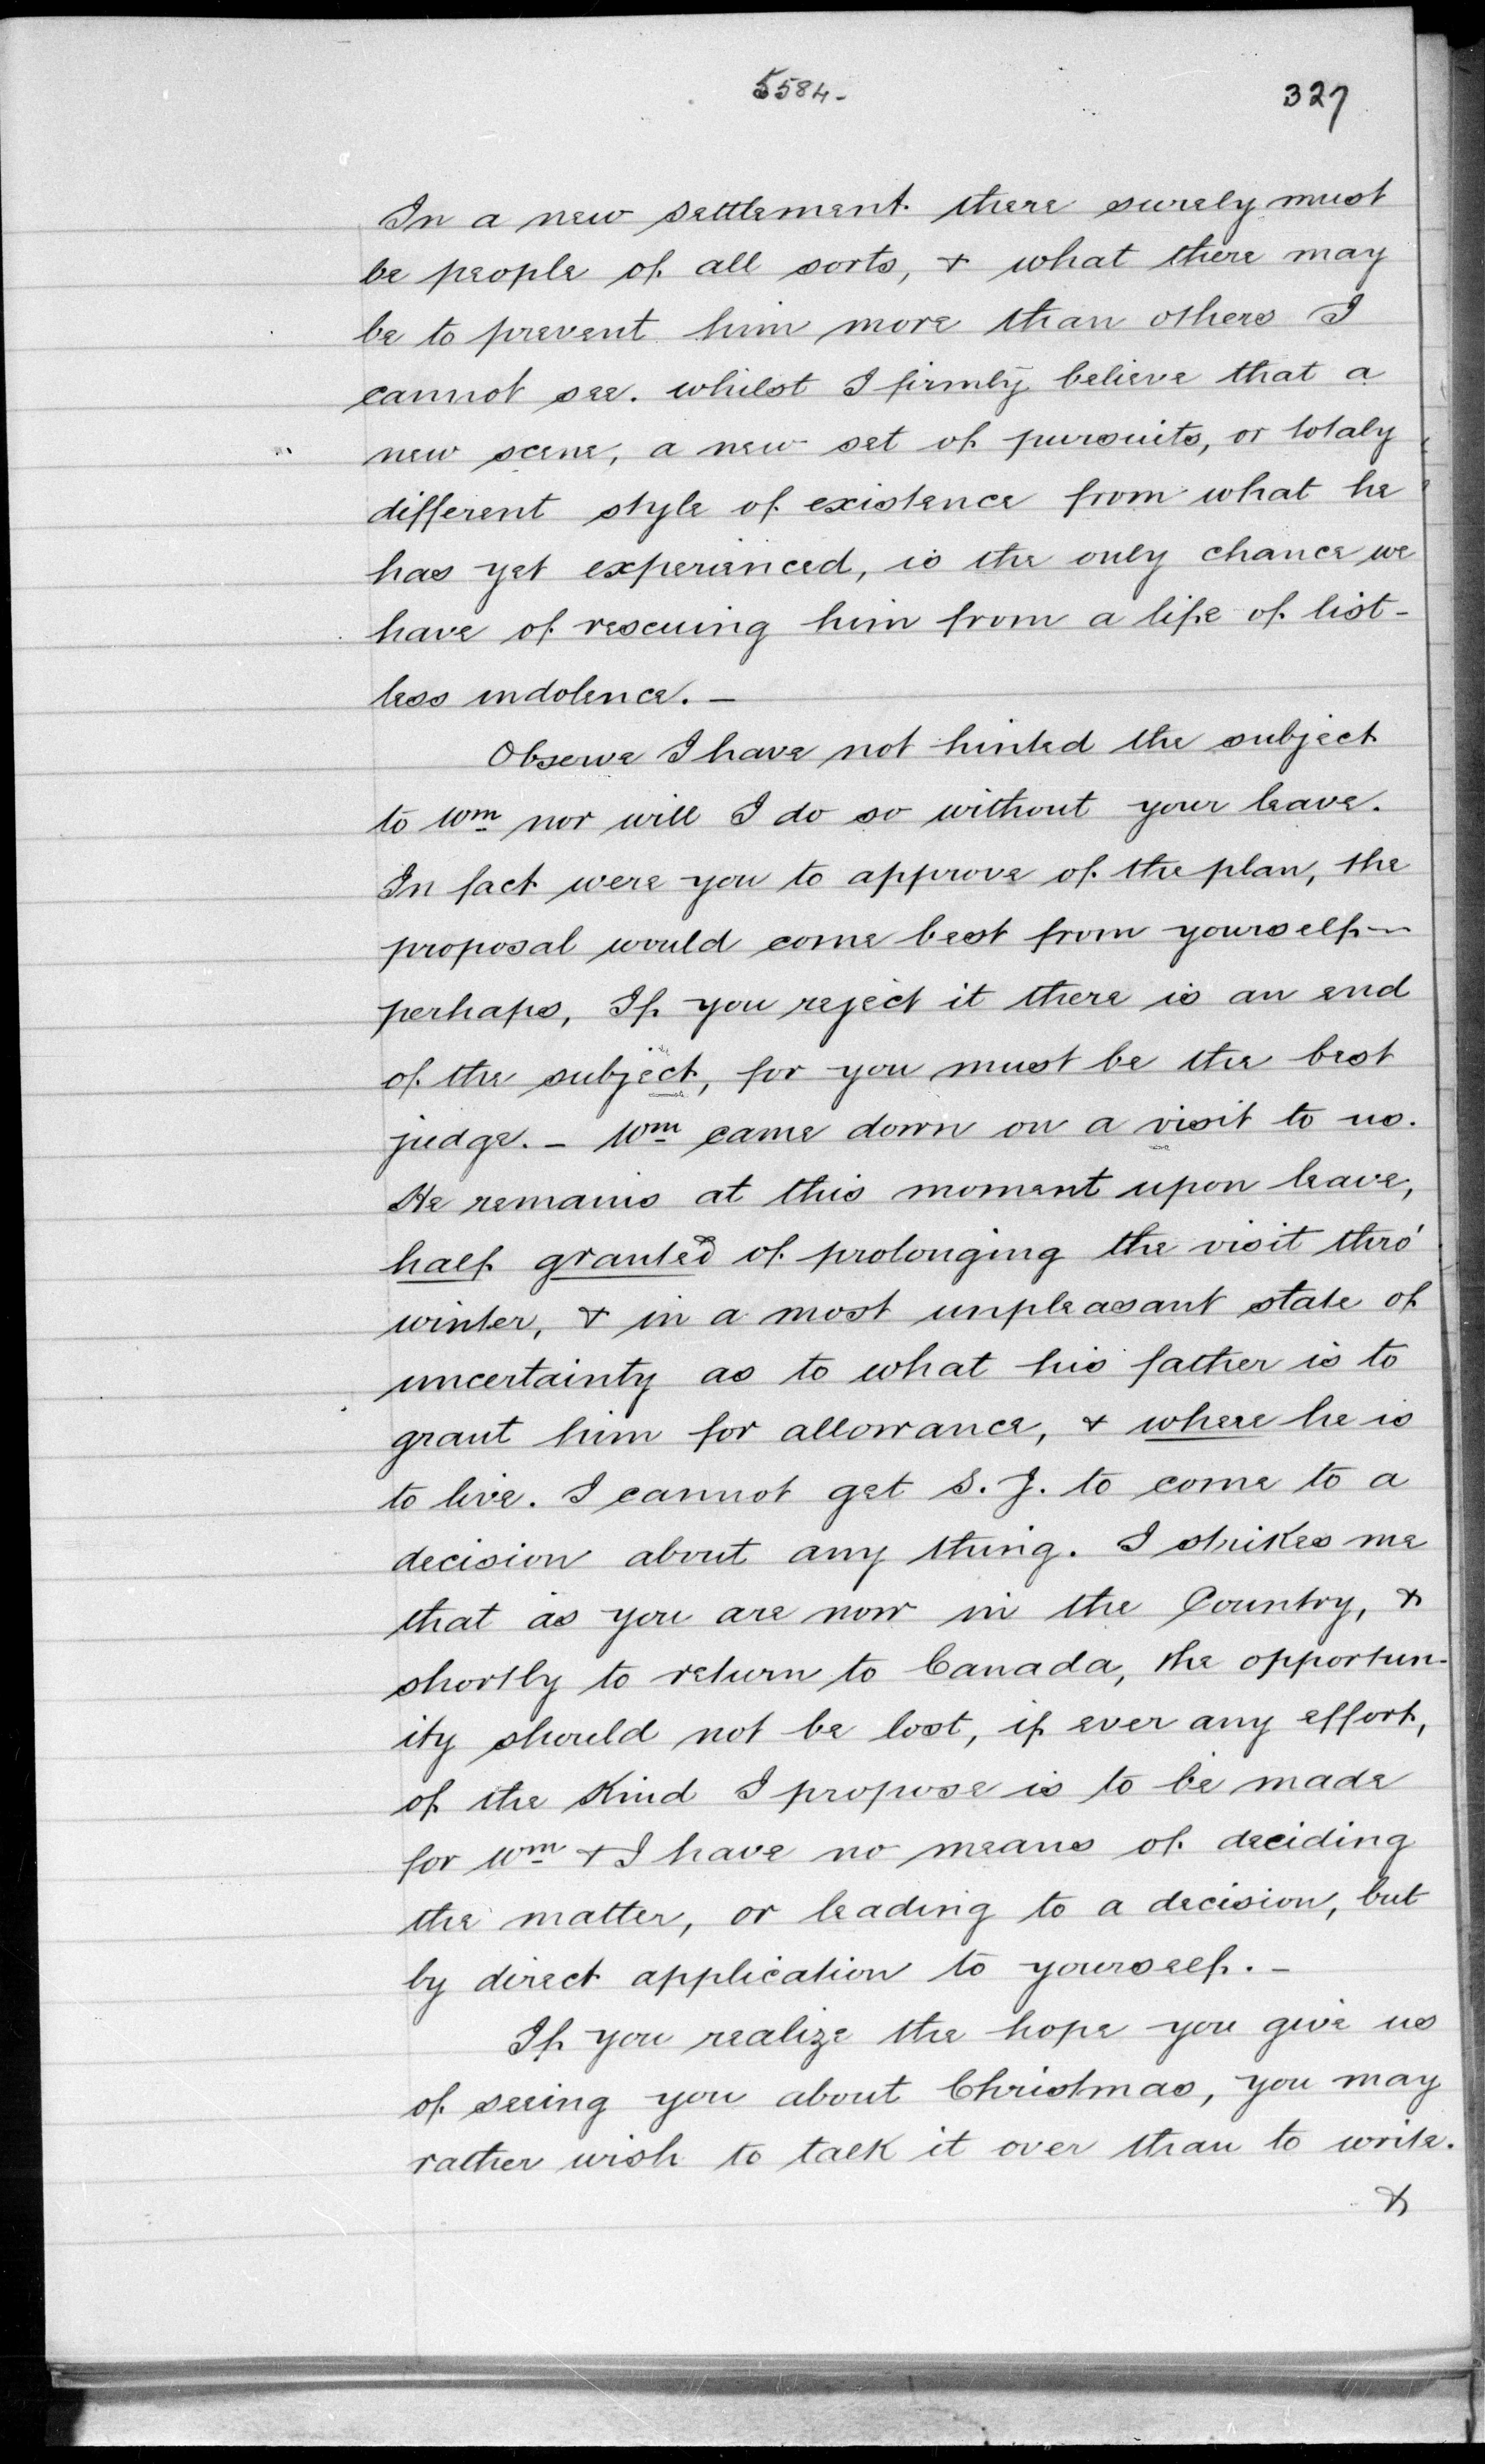 5584-
327
In a new settlement there surely must
be people of all sorts, & what there may
be to prevent him more than others I
cannot see. whilst I firmly believe that a
new scene, a new set of pursuits, or totaly
different style of existence from what he
has yet experienced, is the only chance we
have of rescuing him from a life of list-
less indolence. -
Observe I have not hinted the subject
to Wm nor will I do so without your leave.
In fact were you to approve of the plan, the
proposal would come best from yourself -
perhaps, If you reject it there is an end
of the subject, for you must be the best
judge. - Wm came down on a visit to us.
He remains at this moment upon leave,
half granted of prolonging the visit thro'
winter, & in a most unpleasant state of
uncertainty as to what his father is to
grant him for allowance, & where he is
to live. I cannot get S. J. to come to a
decision about any thing. I strikes me
that as you are now in the Country, &
shortly to return to Canada, the opportun-
ity should not be lost, if ever any effort,
of the Kind I propose is to be made
for Wm & I have no means of deciding
the matter, or leading to a decision, but
by direct application to yourself. -
If you realize the hope you give us
of seeing you about Christmas, you may
rather wish to talk it over than to write.
&